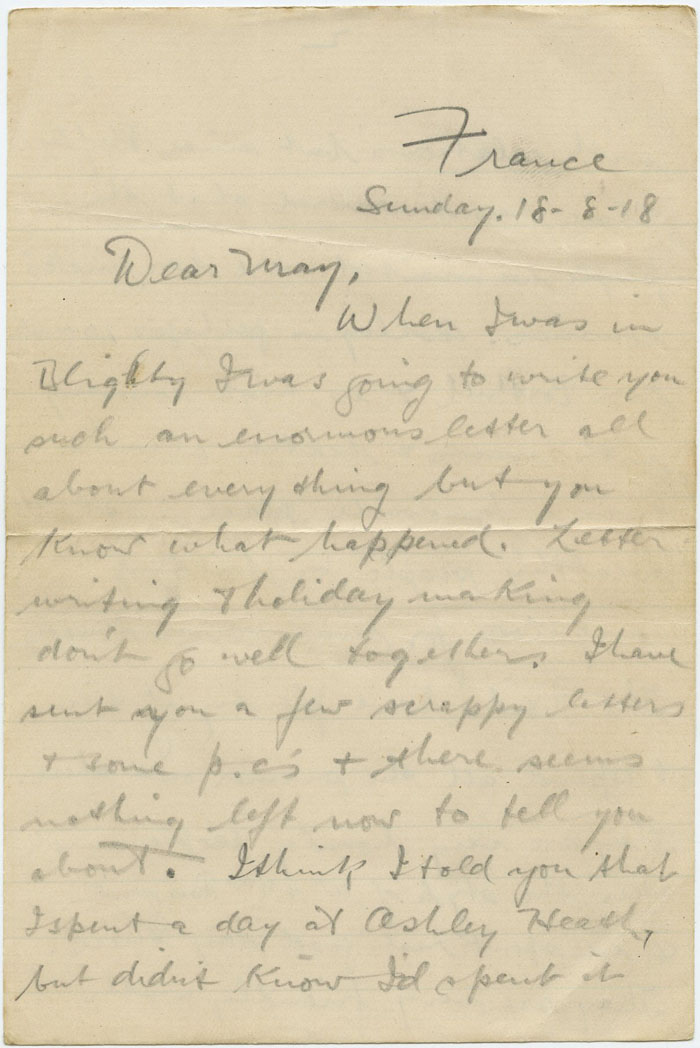 France
Sunday. 18-8-18
Dear May,
When I was in
Blighty I was going to write you
such an enormous letter all
about everything but you
know what happened. Letter
writing & holiday making
don't go well together. I have
sent you a few scrappy letters
+ some p.c's + there seems
nothing left now to tell you
about. I think I told you that
I spent a day at Ashley Heath,
but didn't know I'd spent it